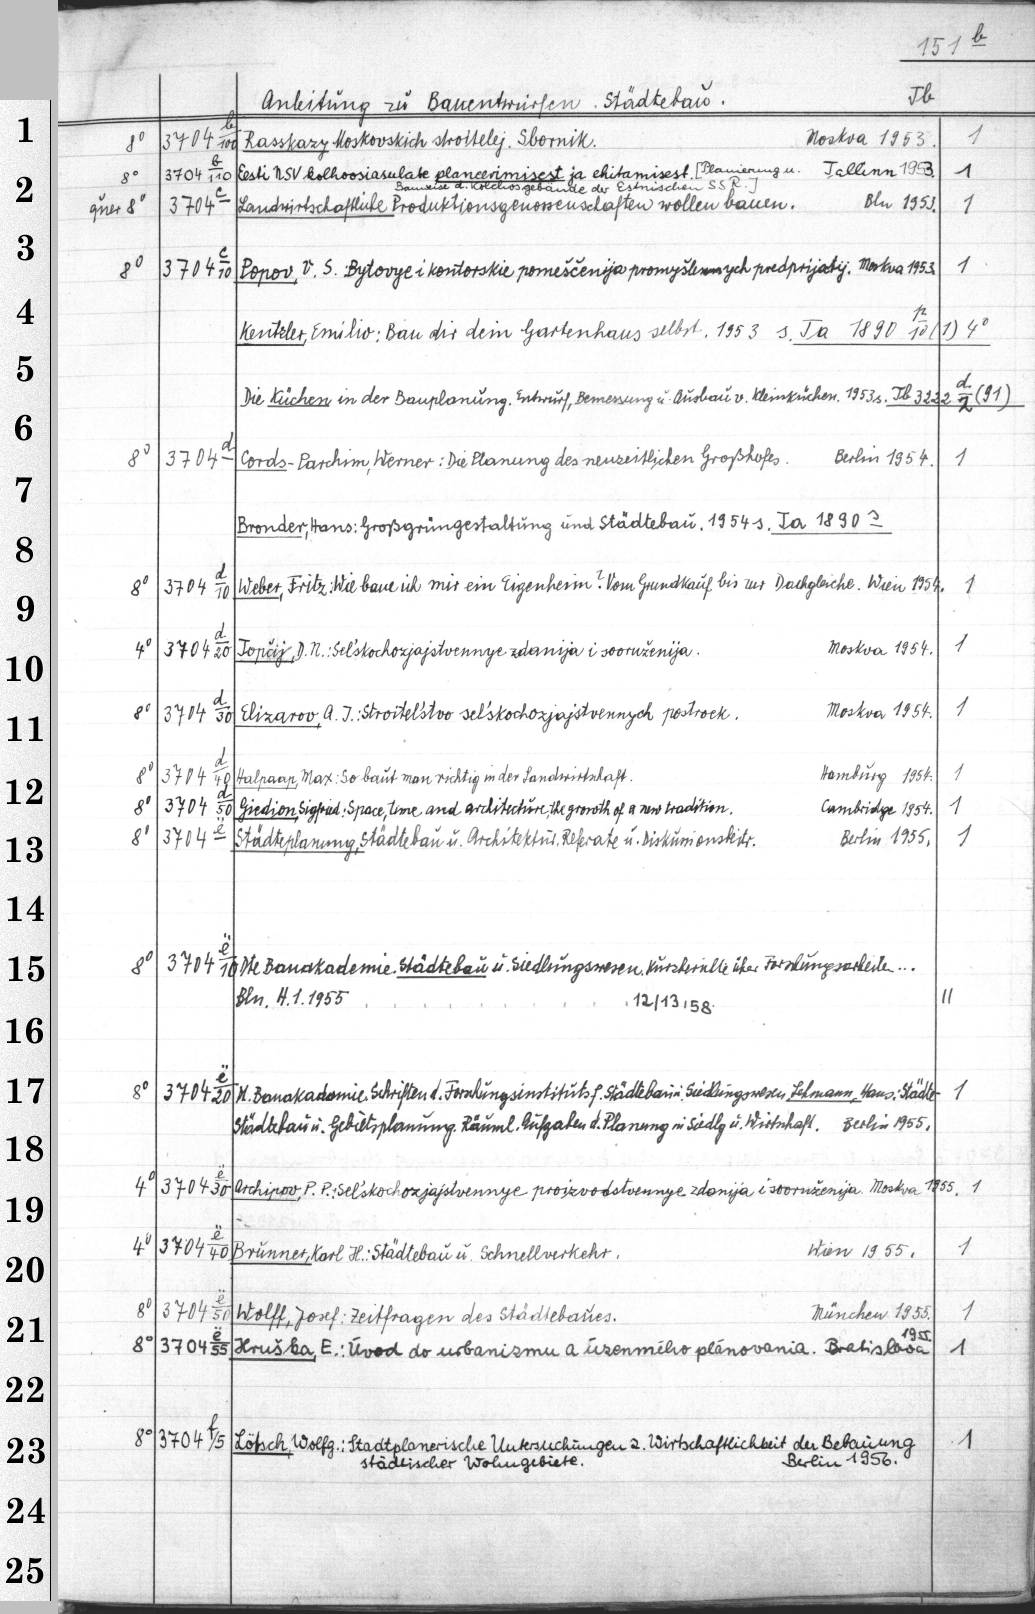 151 b
Anleitung zu Bauentwürfen. Städtebau. Tb
1
8° 3704 b/100 Rasskazy Moskovskich stroitelej. Sbornik. Moskva 1953. 1
8° 3704 b/110 Eesti NSV kolhoosiasulate planeerimisest ja ehitamisest. [Planierung u. Tallinn 1953. 1
2
Bauweise d. Kolchosgebäude der Estnischen SSR.]
quer 8° 3704 c Landwirtschaftliche Produktionsgenossenschaften wollen bauen. Bln 1953. 1
3
8° 3704 c/10 Popov, V. S. Bytovye i kontorskie pomeščenija promyšlennych predprijatij. Moskva 1953. 1
4
Kentzler, Emilio: Bau dir dein Gartenhaus selbst. 1953 s. Ta 1890 n/10 (1) 4°
5
Die Küchen in der Bauplanung. Entwurf, Bemessung u. Ausbau v. Kleinküchen. 1953 s. Tb 3222 d/2 (91)
6
8° 3704 d Cords-Parchim, Werner: Die Planung des neuzeitlichen Großhofes. Berlin 1954. 1
7
Bronder, Hans: Großgrüngestaltung und Städtebau. 1954 s. Ta 1890
8
8° 3704 d/10 Weber, Fritz: Wie baue ich mir ein Eigenheim? Vom Grundkauf bis zur Dachgleiche. Wien 1954. 1
9
4° 3704 d/20 Topčij, D. N.: Sel'skochozjajstvennye zdanija i sooruženija. Moskva 1954. 1
10
8° 3704 d/30 Elizarov, A. I.: Stroitel'stvo sel'skochozjajstvennych postroek. Moskva 1954. 1
11
8° 3704 d/40 Halpaap, Max: So baut man richtig in der Landwirtschaft. Hamburg 1954. 1
12
8° 3704 d/50 Giedion, Sigfried: Space, time and architecture, the growth of a new tradition. Cambridge 1954. 1
8° 3704 ë Städteplanung, Städtebau u. Architektur. Referate u. Diskussionsbtr. Berlin 1955. 1
13
14
8° 3704 ë/10 Dte Bauakademie. Städtebau u. Siedlungswesen. Kurzberichte über Forschungsarbeiten...
15
Bln. H. 1. 1955 . . . . . . . . . . . . 12/13, 58. 11
16
8° 3704 ë/20 D. Bauakademie. Schriften d. Forschungsinstituts f. Städtebau u. Siedlungswesen Lehmann, Hans: Städte- 1
17
Städtebau u. Gebietsplanung. Räuml. Aufgaben d. Planung in Siedlg u. Wirtschaft. Berlin 1955.
18
4° 3704 ë/30 Archipov, P. P.: Sel'skochozjajstvennye proizvodstvennye zdanija i sooruženija. Moskva 1955. 1
19
4° 3704 ë/40 Brunner, Karl H.: Städtebau u. Schnellverkehr. Wien 1955. 1
20
8° 3704 ë/50 Wolff, Josef: Zeitfragen des Städtebaues. München 1955. 1
21
8° 3704 ë/55 Hruška, E.: Úvod do urbanizmu a územného plánovania. Bratislava 1955 1
22
8° 3704 f/5 Lötsch, Wolfg.: Stadtplanerische Untersuchungen z. Wirtschaftlichkeit der Bebauung 1
23
städtischer Wohngebiete. Berlin 1956.
24
25